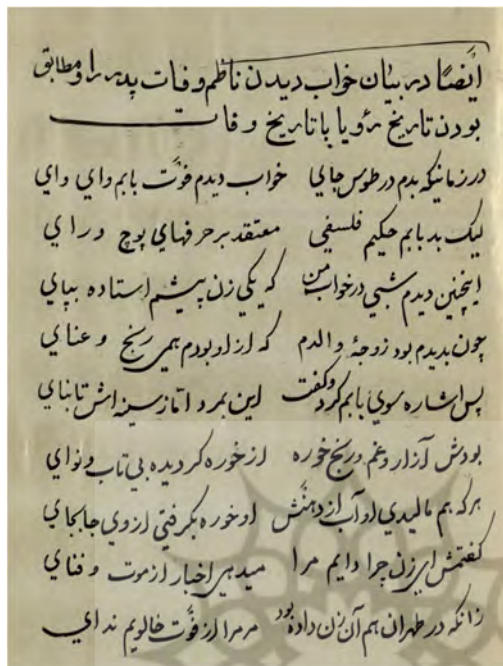 ایضًا در بیان خواب دیدن ناظم وفات پدر را و مطابق
بودن تاریخ رؤیا با تاریخ وفات
در زمانیکه بدم در طوس جای خواب دیدم فوت بابم وای وای
لیک بد بابم حکیم فلسفی معتقد بر حرفهای پوچ و رای
اینچنین دیدم شبی در خواب من که یکی زن پیشم استاده بپای
چون بدیدم بود زوجهٔ والدم که از او بودم همی رنج و عنای
پس اشاره سوی بابم کرد و گفت این بمرد اما ز سینه اش تا بنای
بودش آزار و غم و رنج خوره از خوره گردیده بی تاب و نوای
هر که هم مالیدی او آب از دهنش او خوره بگرفتی از وی جابجای
گفتمش ای زن چرا دایم مرا میدهی اخبار از موت و فنای
زانکه در طهران هم آن زن داده بود مر مرا از فوت خالویم ندای